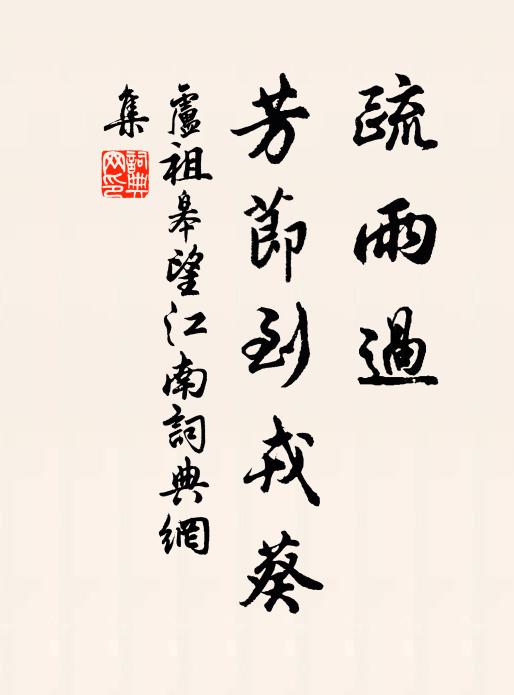 疏雨過
芳節到戎葵
盧祖皋望江南詞典網
集
詞典網印